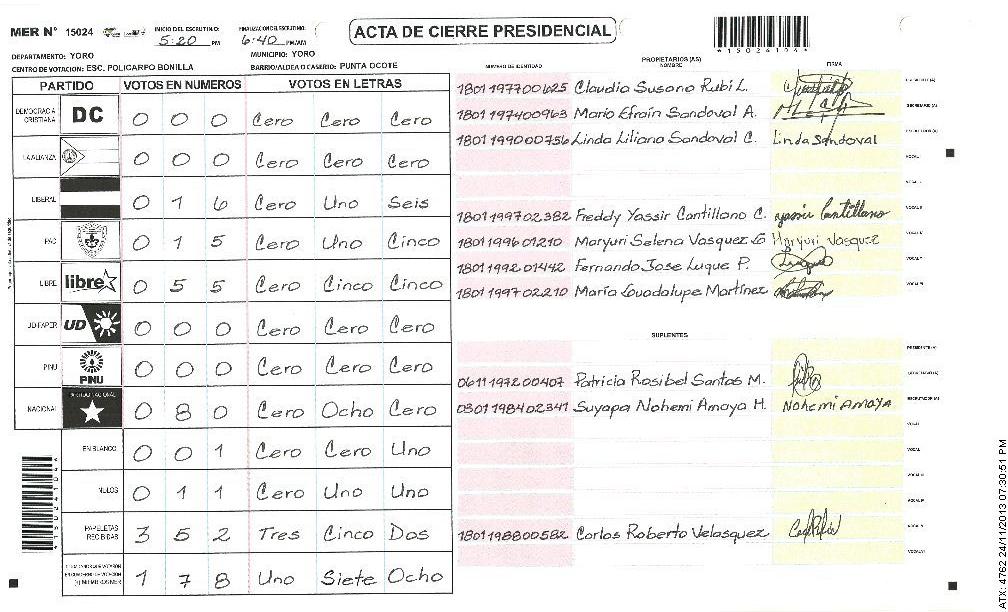 MER N° 15024
INICIO DEL ESCRUTINIO: 5:20 PM
FINALIZACION DEL ESCRUTINIO: 6:40 PM/AM
ACTA DE CIERRE PRESIDENCIAL
DEPARTAMENTO: YORO
MUNICIPIO: YORO
CENTRO DE VOTACION: ESC. POLICARPO BONILLA
BARRIO/ALDEA O CASERIO: PUNTA OCOTE
PARTIDO VOTOS EN NUMEROS VOTOS EN LETRAS
DEMOCRACIA CRISTIANA DC 0 0 0 Cero Cero Cero
LA ALIANZA 0 0 0 Cero Cero Cero
LIBERAL 0 1 6 Cero Uno Seis
PAC 0 1 5 Cero Uno Cinco
LIBRE libre 0 5 5 Cero Cinco Cinco
UD FAPER UD 0 0 0 Cero Cero Cero
PINU PINU 0 0 0 Cero Cero Cero
NACIONAL PARTIDO NACIONAL 0 8 0 Cero Ocho Cero
EN BLANCO 0 0 1 Cero Cero Uno
NULOS 0 1 1 Cero Uno Uno
PAPELETAS RECIBIDAS 3 5 2 Tres Cinco Dos
1 7 8 Uno Siete Ocho
PROPIETARIOS (AS)
NUMERO DE IDENTIDAD NOMBRE FIRMA
1801197700625 Claudio Susono Rubi L.
1801197400963 Mario Efraín Sandoval A.
1801199000756 Linda Liliano Sandoval C. Linda Sandoval
1801199702382 Freddy Yassir Cantillano C. yassir Cantillano
1801199601210 Maryuri Selena Vasquez G Maryuri Vasquez
1801199201442 Fernando Jose Luque P.
1801199702210 María Guadalupe Martínez
SUPLENTES
0611197200407 Patricia Rosibel Santos M.
0301198402341 Suyapa Nohemi Amaya H. Nohemi AMAYA
1801198800582 Carlos Roberto Velasquez
ATX: 4762 24/11/2013 07:30:51 PM